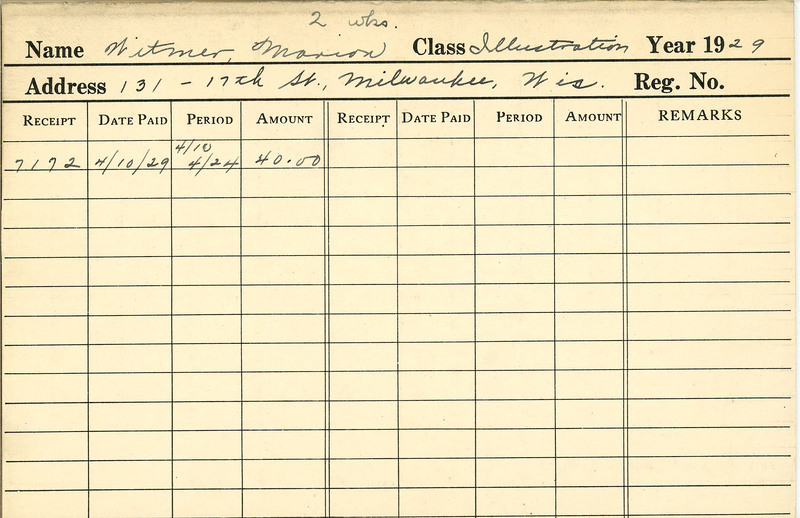 2 wks.
Name Witmer, Marion Class Illustration Year 1929
Address 131 - 17th St., Milwaukee, Wis. Reg. No.
RECEIPT DATE PAID PERIOD AMOUNT RECEIPT DATE PAID PERIOD AMOUNT REMARKS
4/10
7172 4/10/29 4/24 40.00